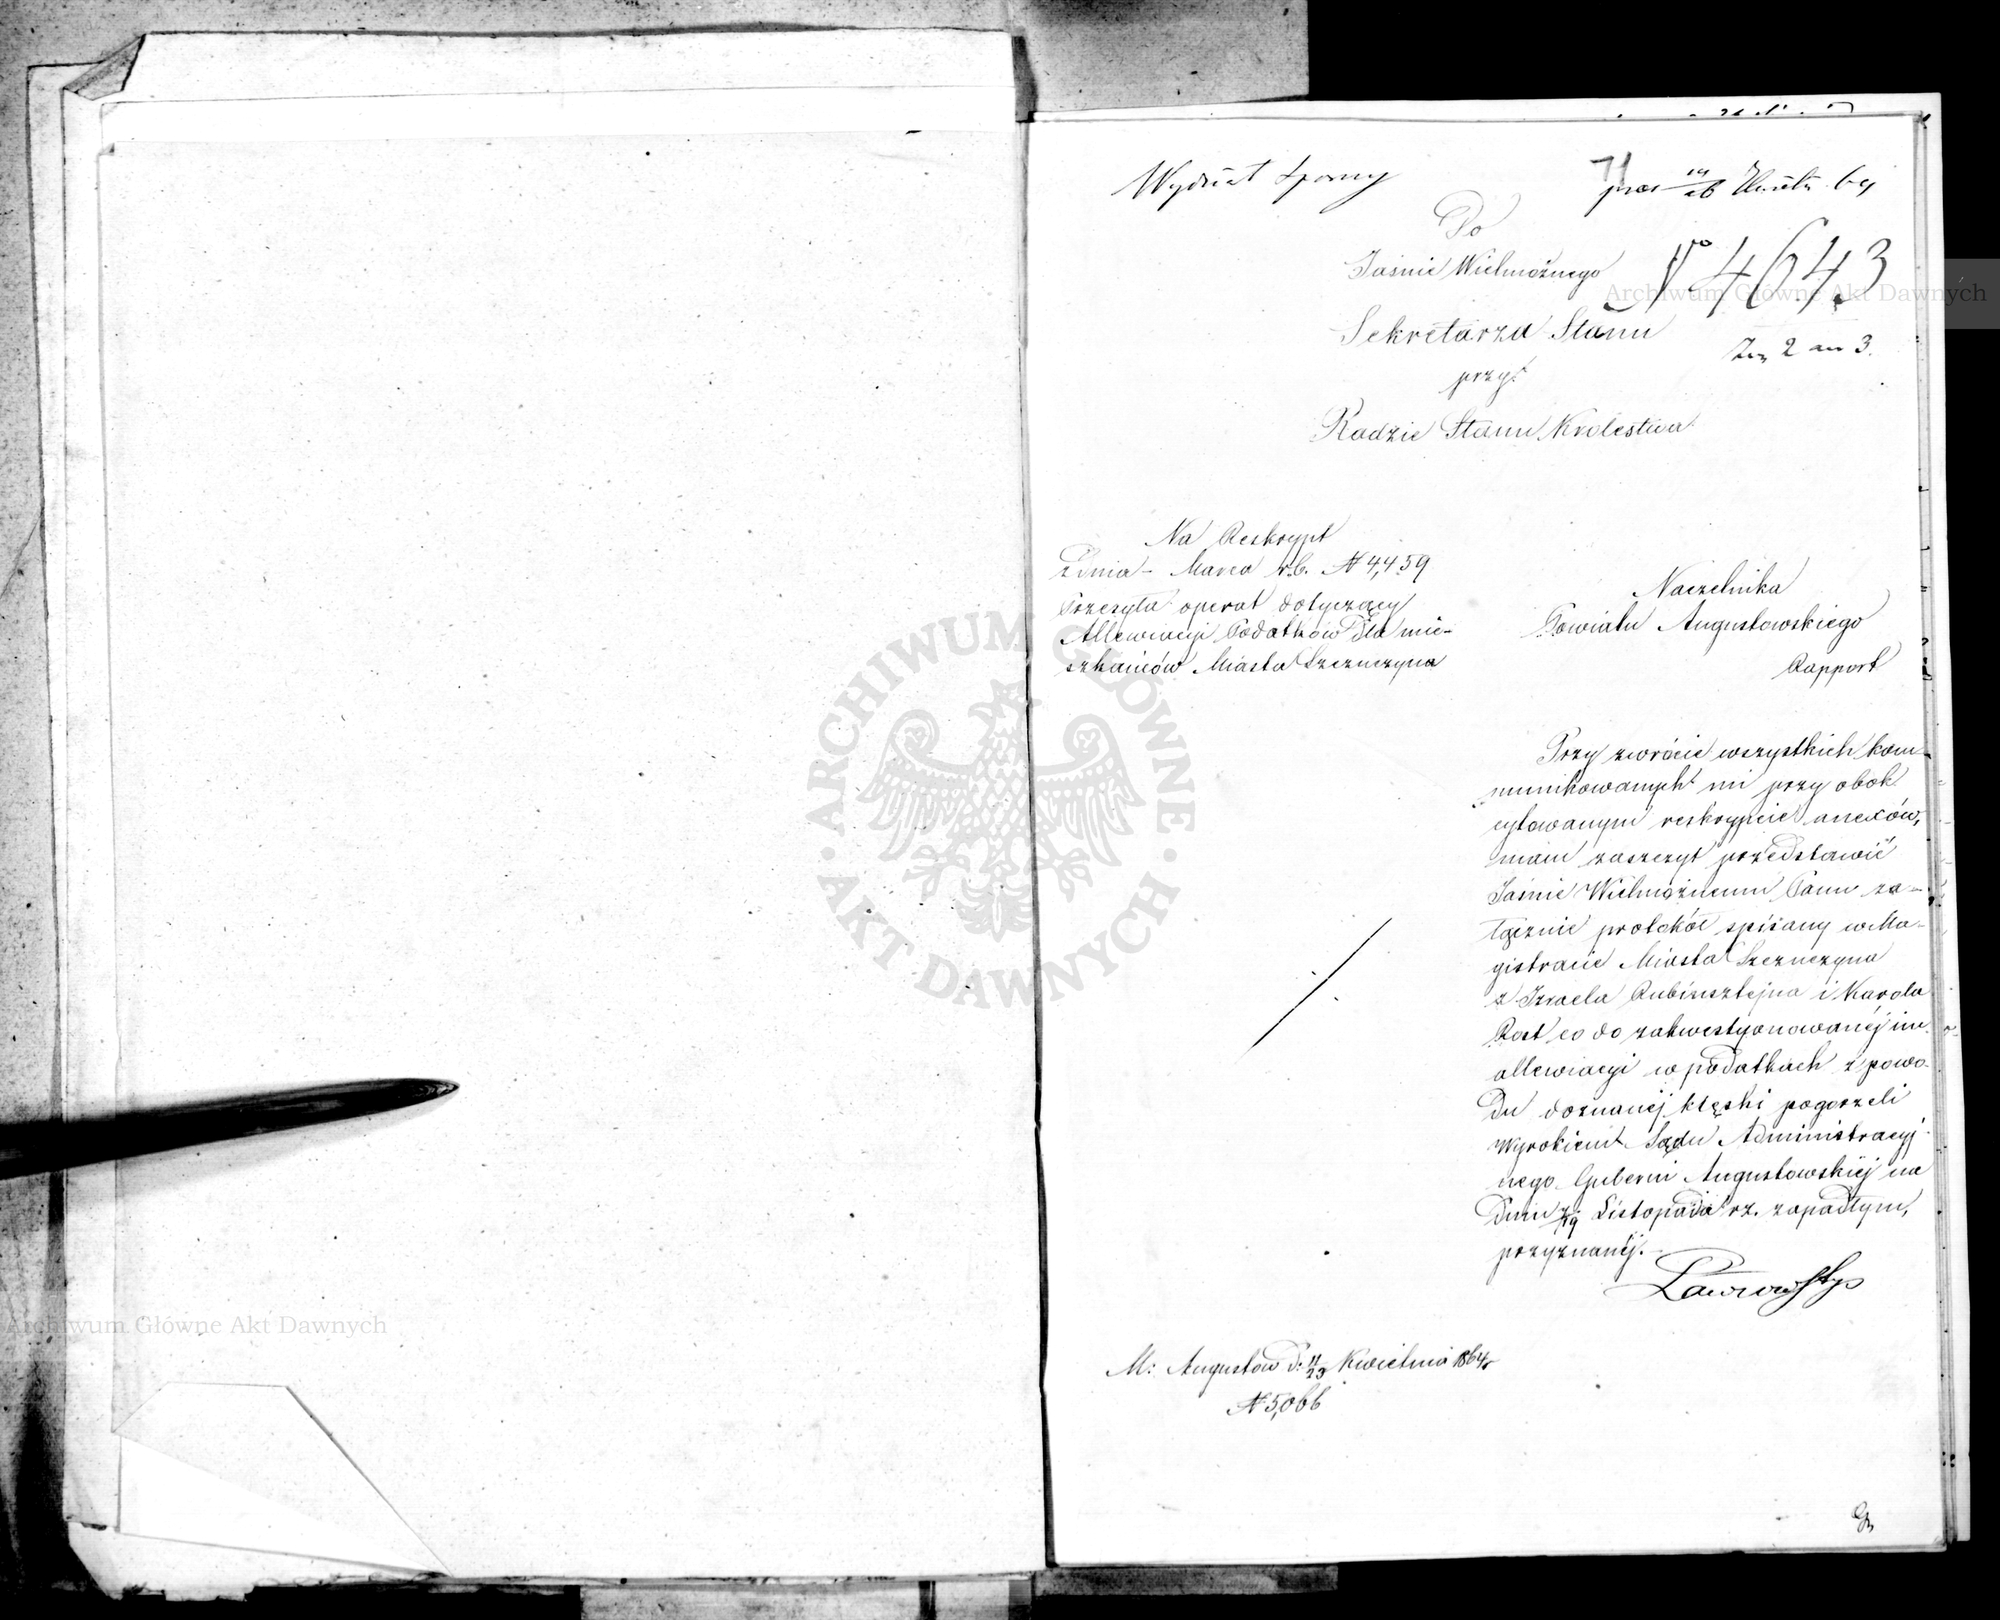 Wydział Sporny
71
pres 14/26 Kwiet. 64
Do
Jaśnie Wielmożnego
No 4643
Sekretarza Stanu
2 an 3.
przy
Radzie Stanu Królestwa
Na Reskrypt
z dnia - Marca r.b. N 4,459
Przesyła operat dotyczący
Allewiacyi Podatków dla mie-
szkańców Miasta Szczuczyna
Naczelnika
Powiatu Augustowskiego
Rapport
Przy zwrócie wszystkich kom-
munikowanych mi przy obok
cytowanym reskrypcie anexów,
mam zaszczyt przedstawić
Jaśnie Wielmożnemu Panu za-
łącznie protokół spisany w Ma-
gistracie Miasta Szczuczyna
z Izraela Rubinsztejna i Karola
Rost co do zakwestyonowanéj im
allewiacyi w podatkach z powo-
du doznanéj klęski pogorzeli
Wyrokiem Sądu Administracyj-
nego Guberni Augustowskiéj na
dniu 7/19 Listopada rz. zapadłym,
przyznanéj.
M: Augustow d: 11/23 Kwietnia 1864 r
N 5,066
Archiwum Główne Akt Dawnych
Archiwum Główne Akt Dawnych
ARCHIWUM GŁÓWNE · AKT DAWNYCH ·